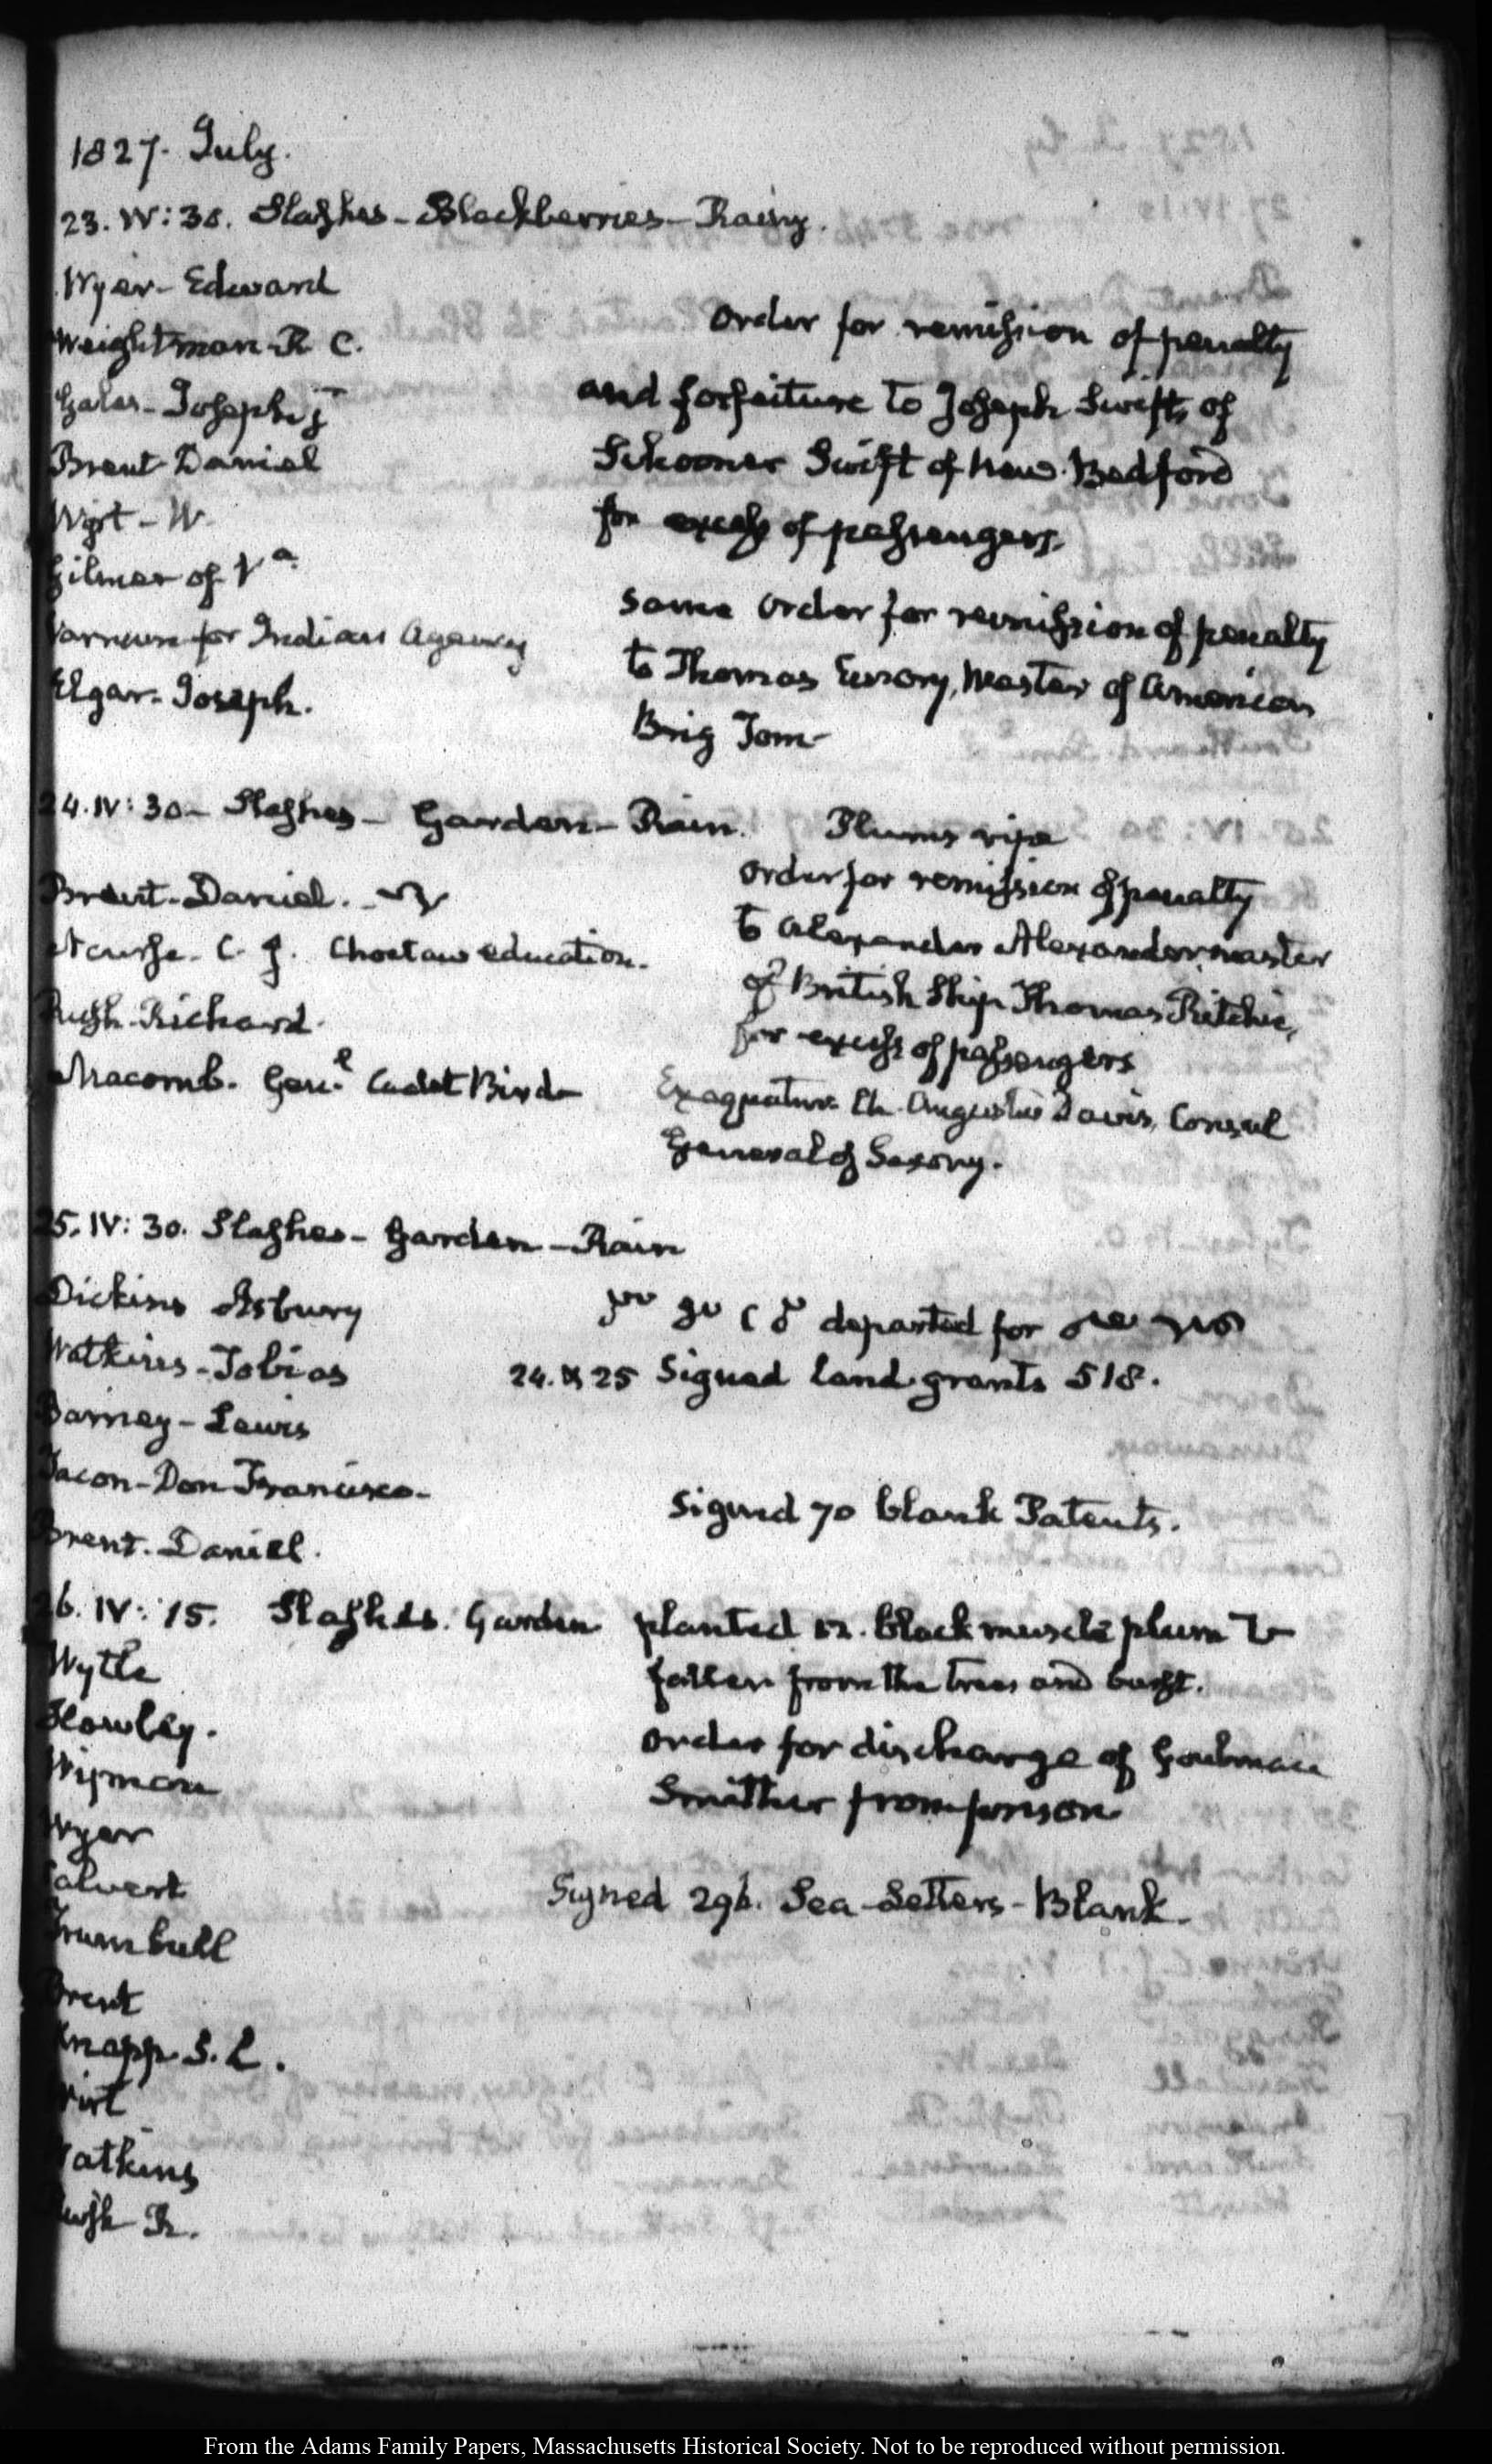 1827. July.
23. IV: 30. Slashes - Blackberries - Rainy.
Wyer - Edward
Weightman R C.
Gales - Joseph jr
Brent Daniel
Wirt - W
Gilmer of Va
Varnum for Indian Agency
Elgar - Joseph.
Order for remission of penalty
and forfeiture to Joseph Swift, of
Schooner Swift of New Bedford
for excess of passengers.
Same order for remission of penalty
to Thomas Emory, Master of American
Brig Tom-
24. IV: 30 - Slashes - Garden - Rain. Plums ripe
Brent - Daniel. -
Nourse. C. J. Choctaw education.
Rush - Richard.
Macomb. Genl. Cadet Bird -
Order for remission of penalty
to Alexander Alexander, master
of British Ship Thomas Ritchie,
for excess of passengers
Exequatur Ch. Augustus Davis, Consul
General of Saxony.
25. IV: 30. Slashes - Garden - Rain
Dickins Asbury
Watkins - Tobias
Barney - Lewis
Tacon - Don Francisco -
Brent. Daniel.
departed for
24. & 25 Signed land grants 518.
Signed 70 blank Patents.
26. IV: 15. Slashes. Garden
Wyer
Calvert
Trumbull
Brent
Knapp. S. L.
Wirt
Watkins
Rush R.
planted 12. black muscle plum
fallen from the trees and burst.
order for discharge of
Smither from prison
Signed 296. Sea-Letters - Blank.
From the Adams Family Papers, Massachusetts Historical Society. Not to be reproduced without permission.